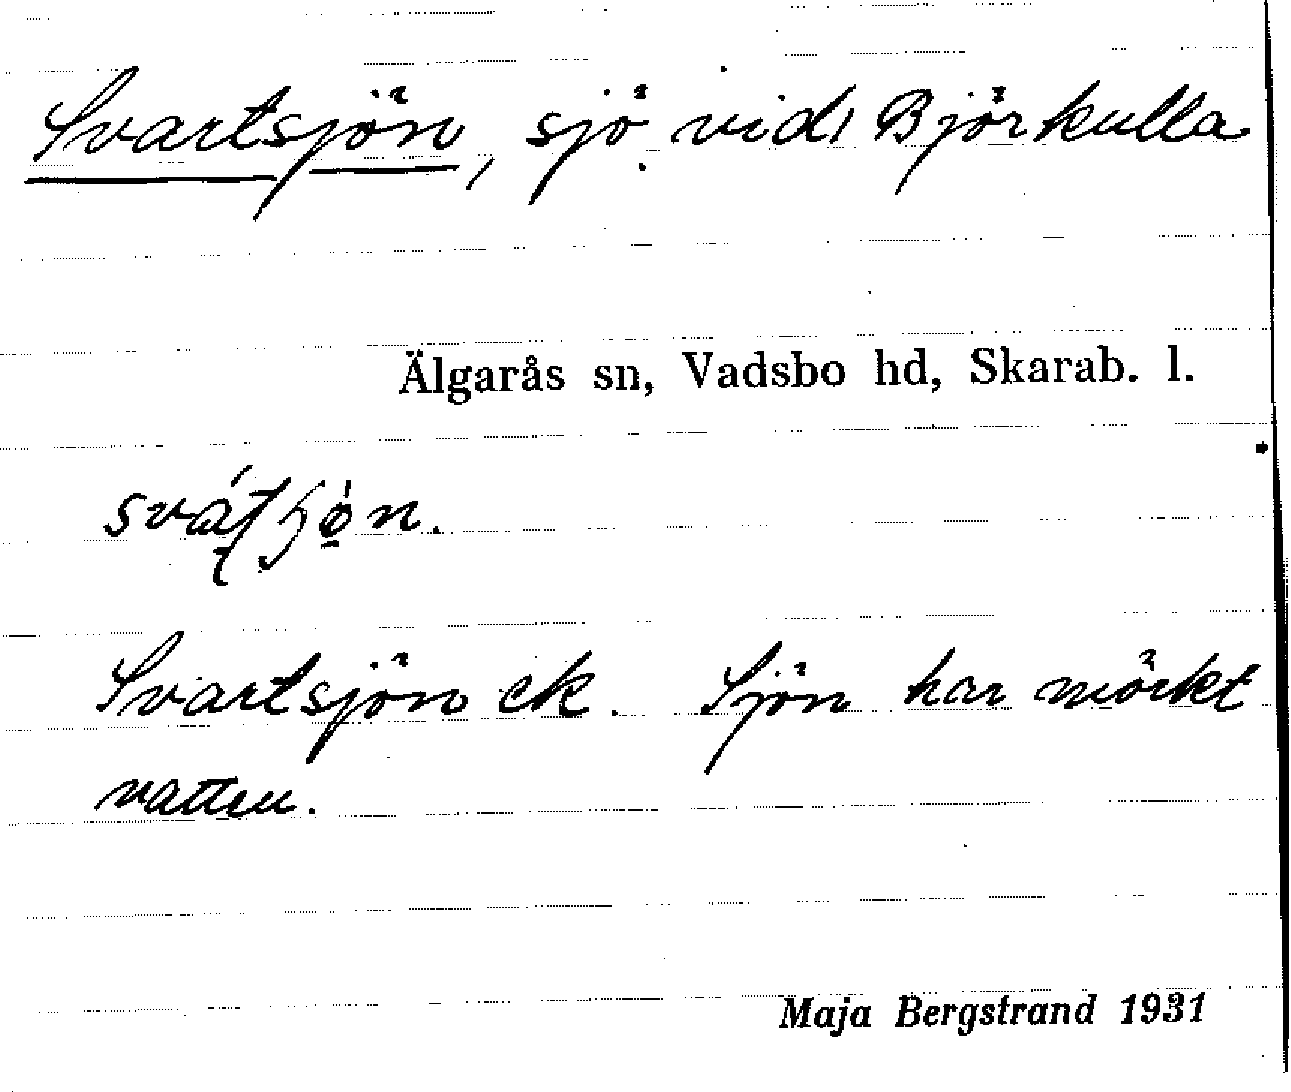 Svartsjön, sjö vid Björkulla
Älgarås sn, Vadsbo hd, Skarab. l.
Svartsjön ek. Sjön har mörkt
vatten.
Maja Bergstrand 1931